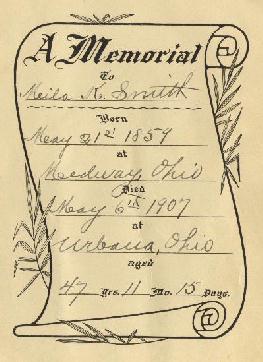 A Memorial
To
Meila K. Smith
Born
May 21st 1859
at
Medway, Ohio
Died
May 6th 1907
at
Urbana, Ohio
aged
47 Yrs. 11 Mo. 15 Days.